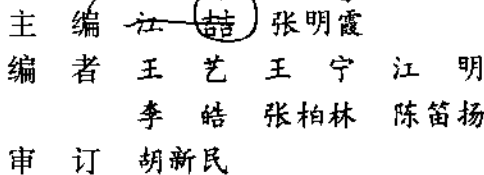 主 编 江 喆 张明霞
编 者 王 艺 王 宁 江 明
李 皓 张柏林 陈笛扬
审 订 胡新民